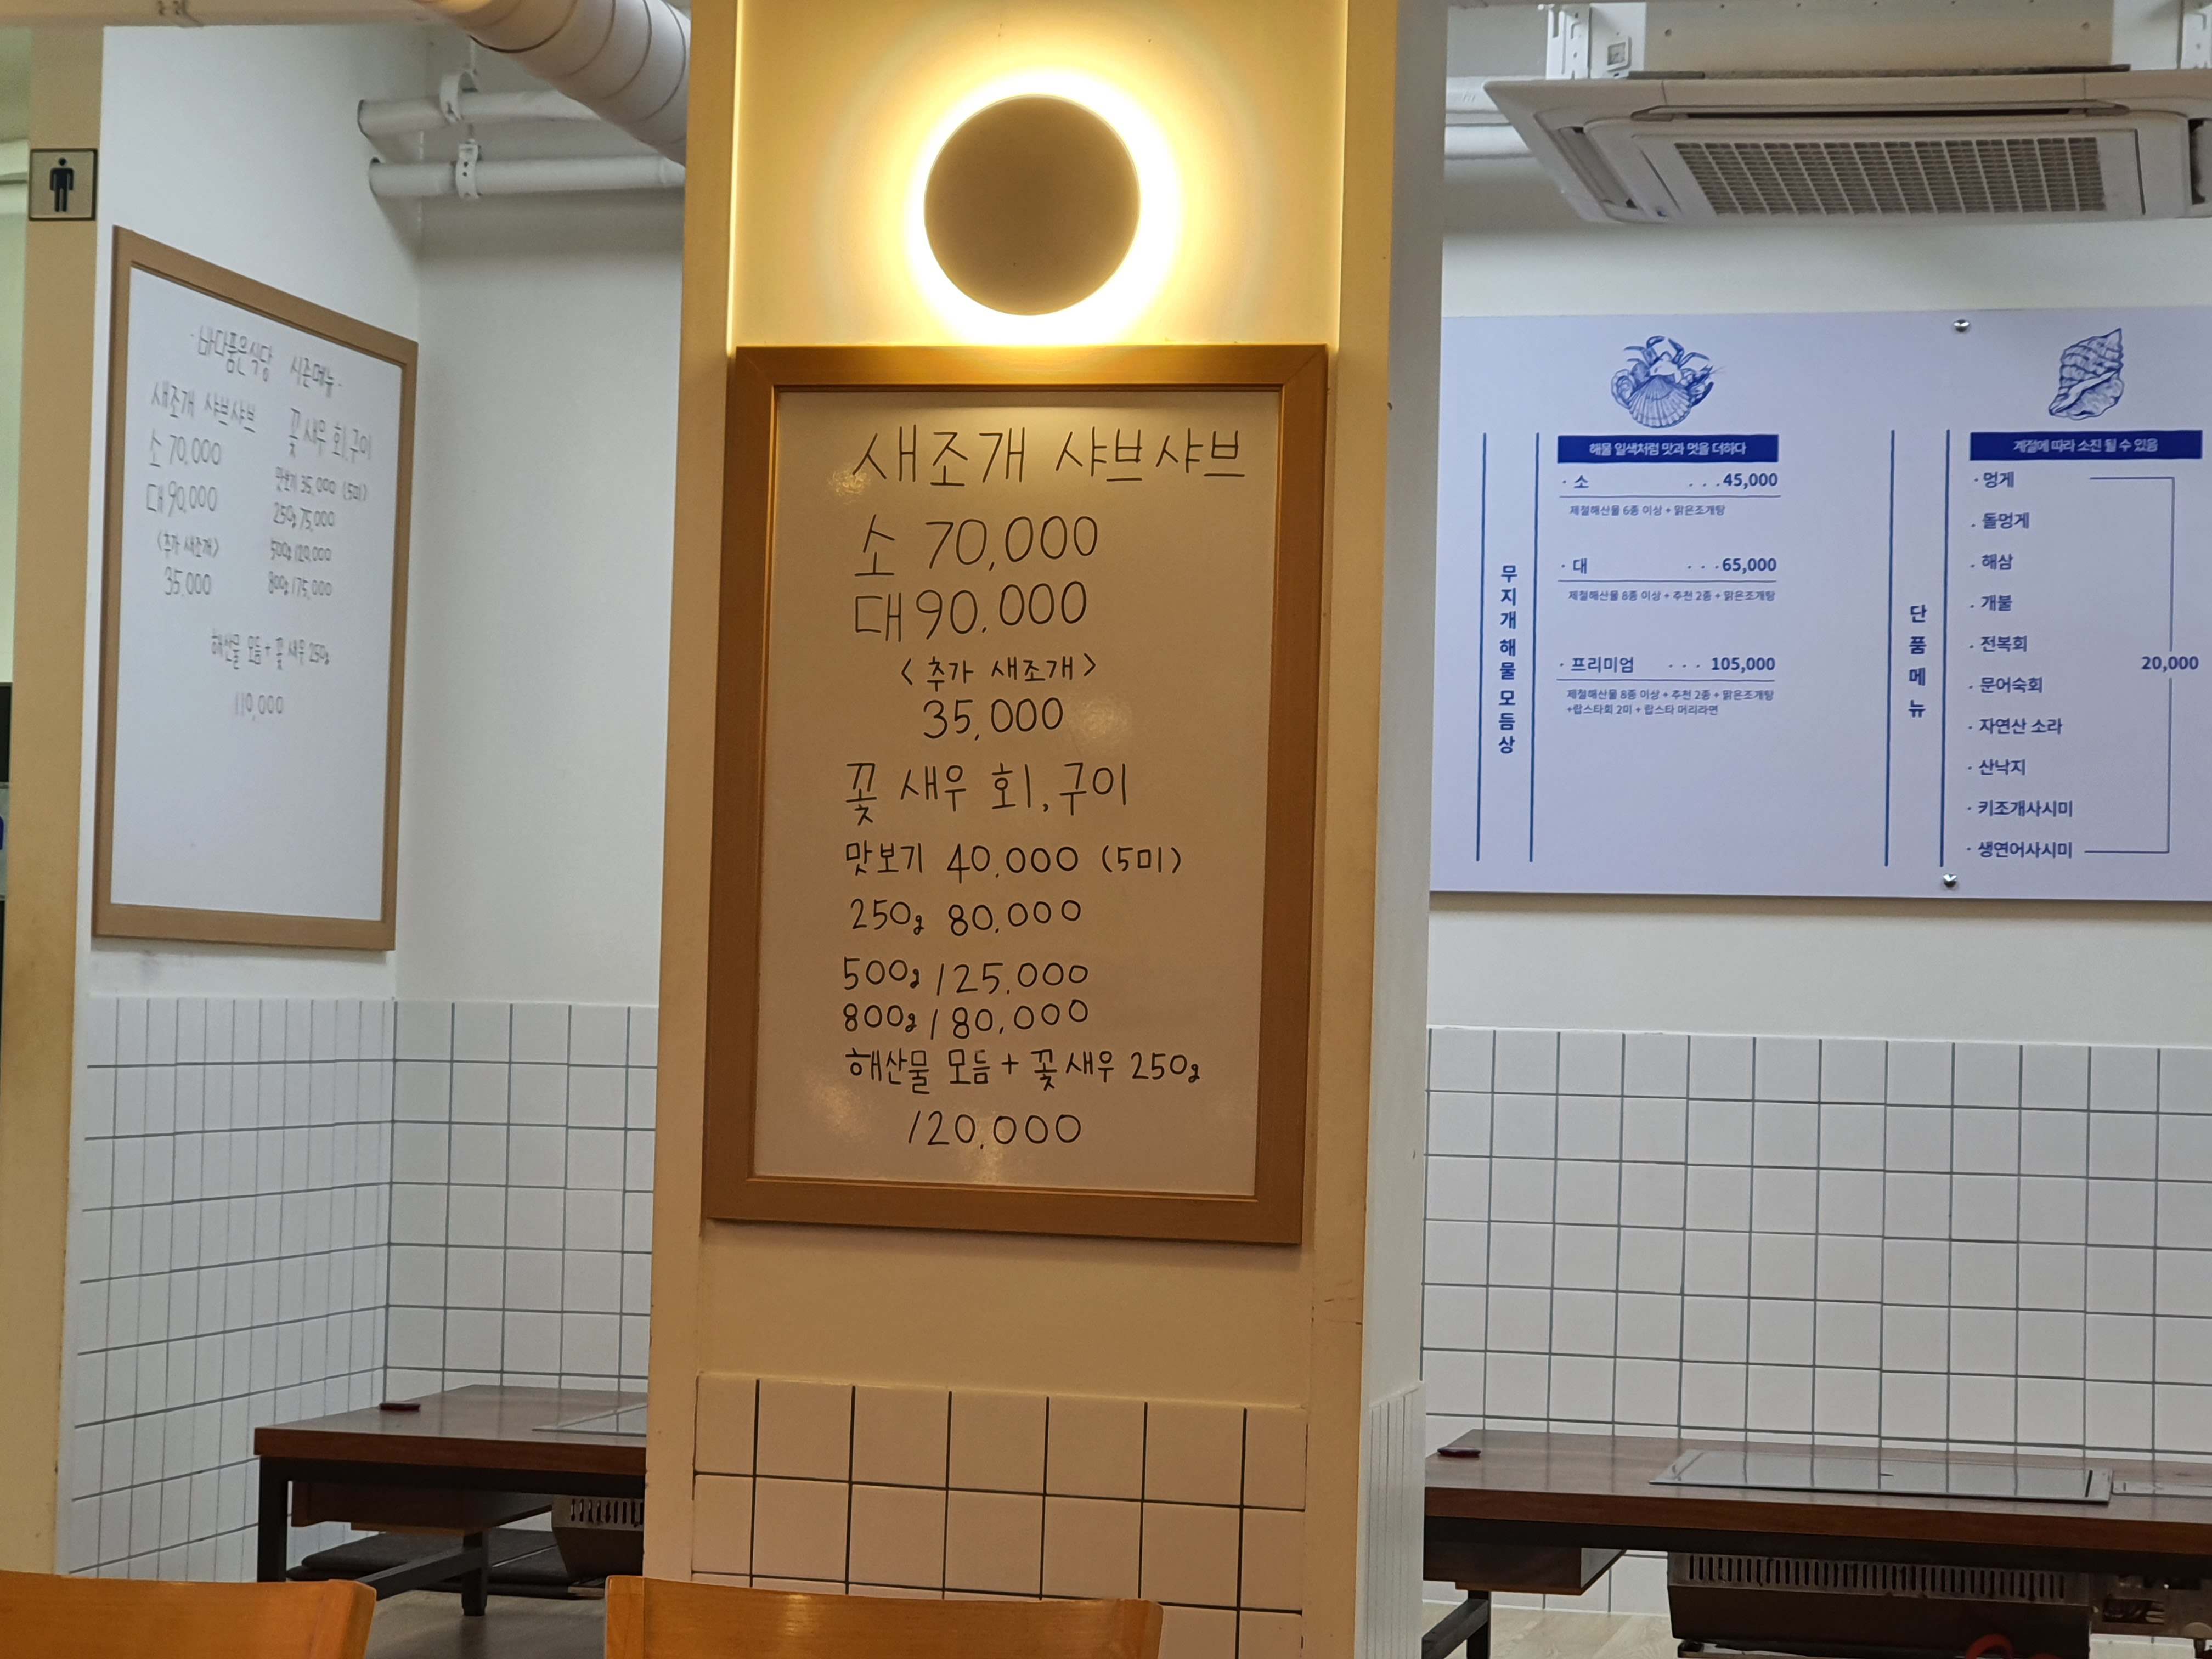 · 바다품은식당 시즌메뉴 ·
새조개 샤브샤브
소 70,000
대 90,000
<추가 새조개>
35,000
꽃새우 회, 구이
맛보기 35,000 (5미)
250g 75,000
500g 120,000
800g 175,000
해산물 모듬 + 꽃새우 250g
110,000
새조개 샤브샤브
소 70,000
대 90,000
<추가 새조개>
35,000
꽃새우 회, 구이
맛보기 40,000 (5미)
250g 80,000
500g 125,000
800g 180,000
해산물 모듬 + 꽃새우 250g
120,000
무지개해물모듬상
해물 일색처럼 맛과 멋을 더하다
· 소 ...45,000
제철해산물 6종 이상 + 맑은조개탕
· 대 ...65,000
제철해산물 8종 이상 + 추천 2종 + 맑은조개탕
· 프리미엄 ... 105,000
제철해산물 8종 이상 + 추천 2종 + 맑은조개탕
+랍스타회 2미 + 랍스타 머리라면
단품메뉴
계절에 따라 소진 될 수 있음
· 멍게
· 돌멍게
· 해삼
· 개불
· 전복회
· 문어숙회
· 자연산 소라
· 산낙지
· 키조개사시미
· 생연어사시미
20,000